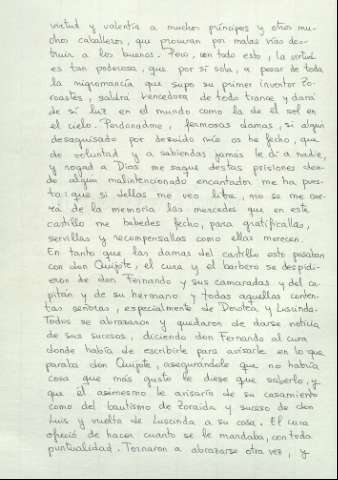 virtud y valentía a muchos príncipes y otros mu-
chos caballeros, que procuran por malas vías des-
truir a los buenos. Pero, con todo esto, la virtud
es tan poderosa, que por sí sola, a pesar de toda
la nigromancía que supo su primer inventor Zo-
roastes, saldrá vencedora de todo trance y dará
de sí luz en el mundo como la da el sol en
el cielo. Perdonadme, fermosas damas, si algún
desaguisado por descuido mío os he fecho, que
de voluntad y a sabiendas jamás le di a nadie,
y rogad a Dios me saque destas prisiones don-
de algún malintencionado encantador me ha pues-
to; que si dellas me veo libre, no se me cae-
rá de la memoria las mercedes que en este
castillo me habedes fecho, para gratificallas,
servillas y recompensallas como ellas merecen.
En tanto que las damas del castillo esto pasaban
con don Quijote, el cura y el barbero se despidi-
eron de don Fernando y sus camaradas y del ca-
pitán y de su hermano y todas aquellas conten-
tas señoras, especialmente de Dorotea y Luscinda.
Todos se abrazaron y quedaron de darse noticia
de sus sucesos, diciendo don Fernando al cura
donde había de escribirle para avisarle en lo que
paraba don Quijote, asegurándole que no habría
cosa que más gusto le diese que saberlo, y
que él asimesmo le avisaría de su casamiento
como del bautismo de Zoraida y suceso de don
Luis y vuelta de Luscinda a su casa. El cura
ofreció de hacer cuanto se le mandaba, con toda
puntualidad. Tornaron a abrazarse otra vez, y